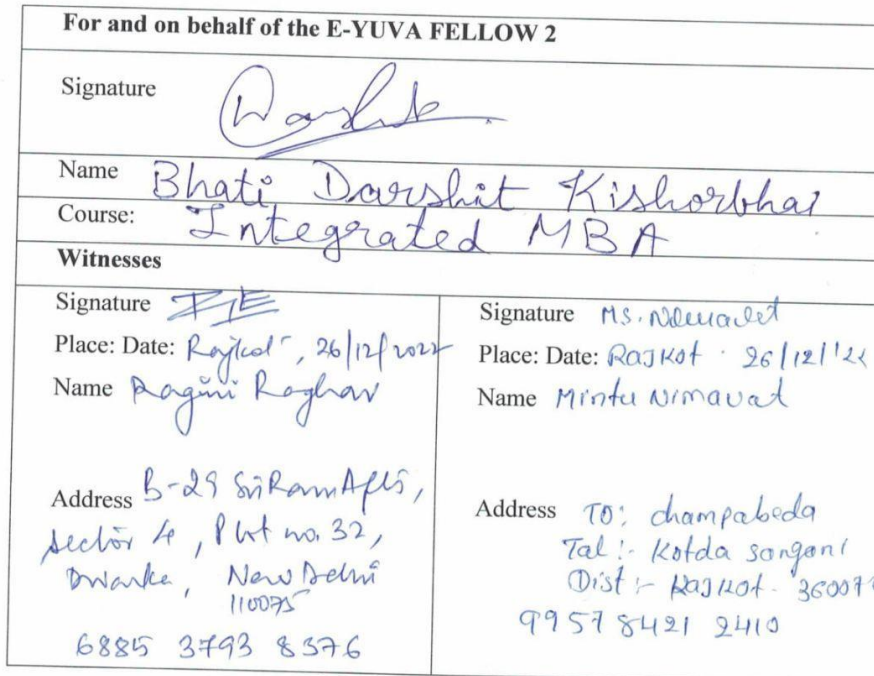 For and on behalf of the E-YUVA FELLOW 2
Signature Darshit
Name Bhati Darshit Kishorbhai
Course: Integrated MBA
Witnesses
Signature
Place: Date: Rajkot, 26/12/2022
Name Ragini Raghav
Address B-29 Sri Ram Apts,
Sector 4, Plot no. 32,
Dwarka, New Delhi
110075
6885 3793 8376
Signature Ms. Nimavat
Place: Date: Rajkot 26/12/'22
Name Mintu Nimavat
Address TO: champabeda
Tal:- Kotda sangani
Dist:- Rajkot-
9957 8421 2410